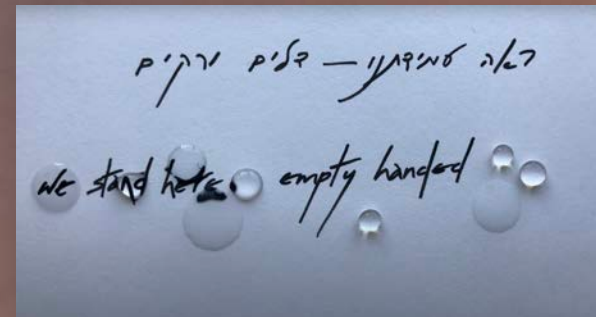 ראה עמידתנו — דלים ורקים
we stand here empty handed